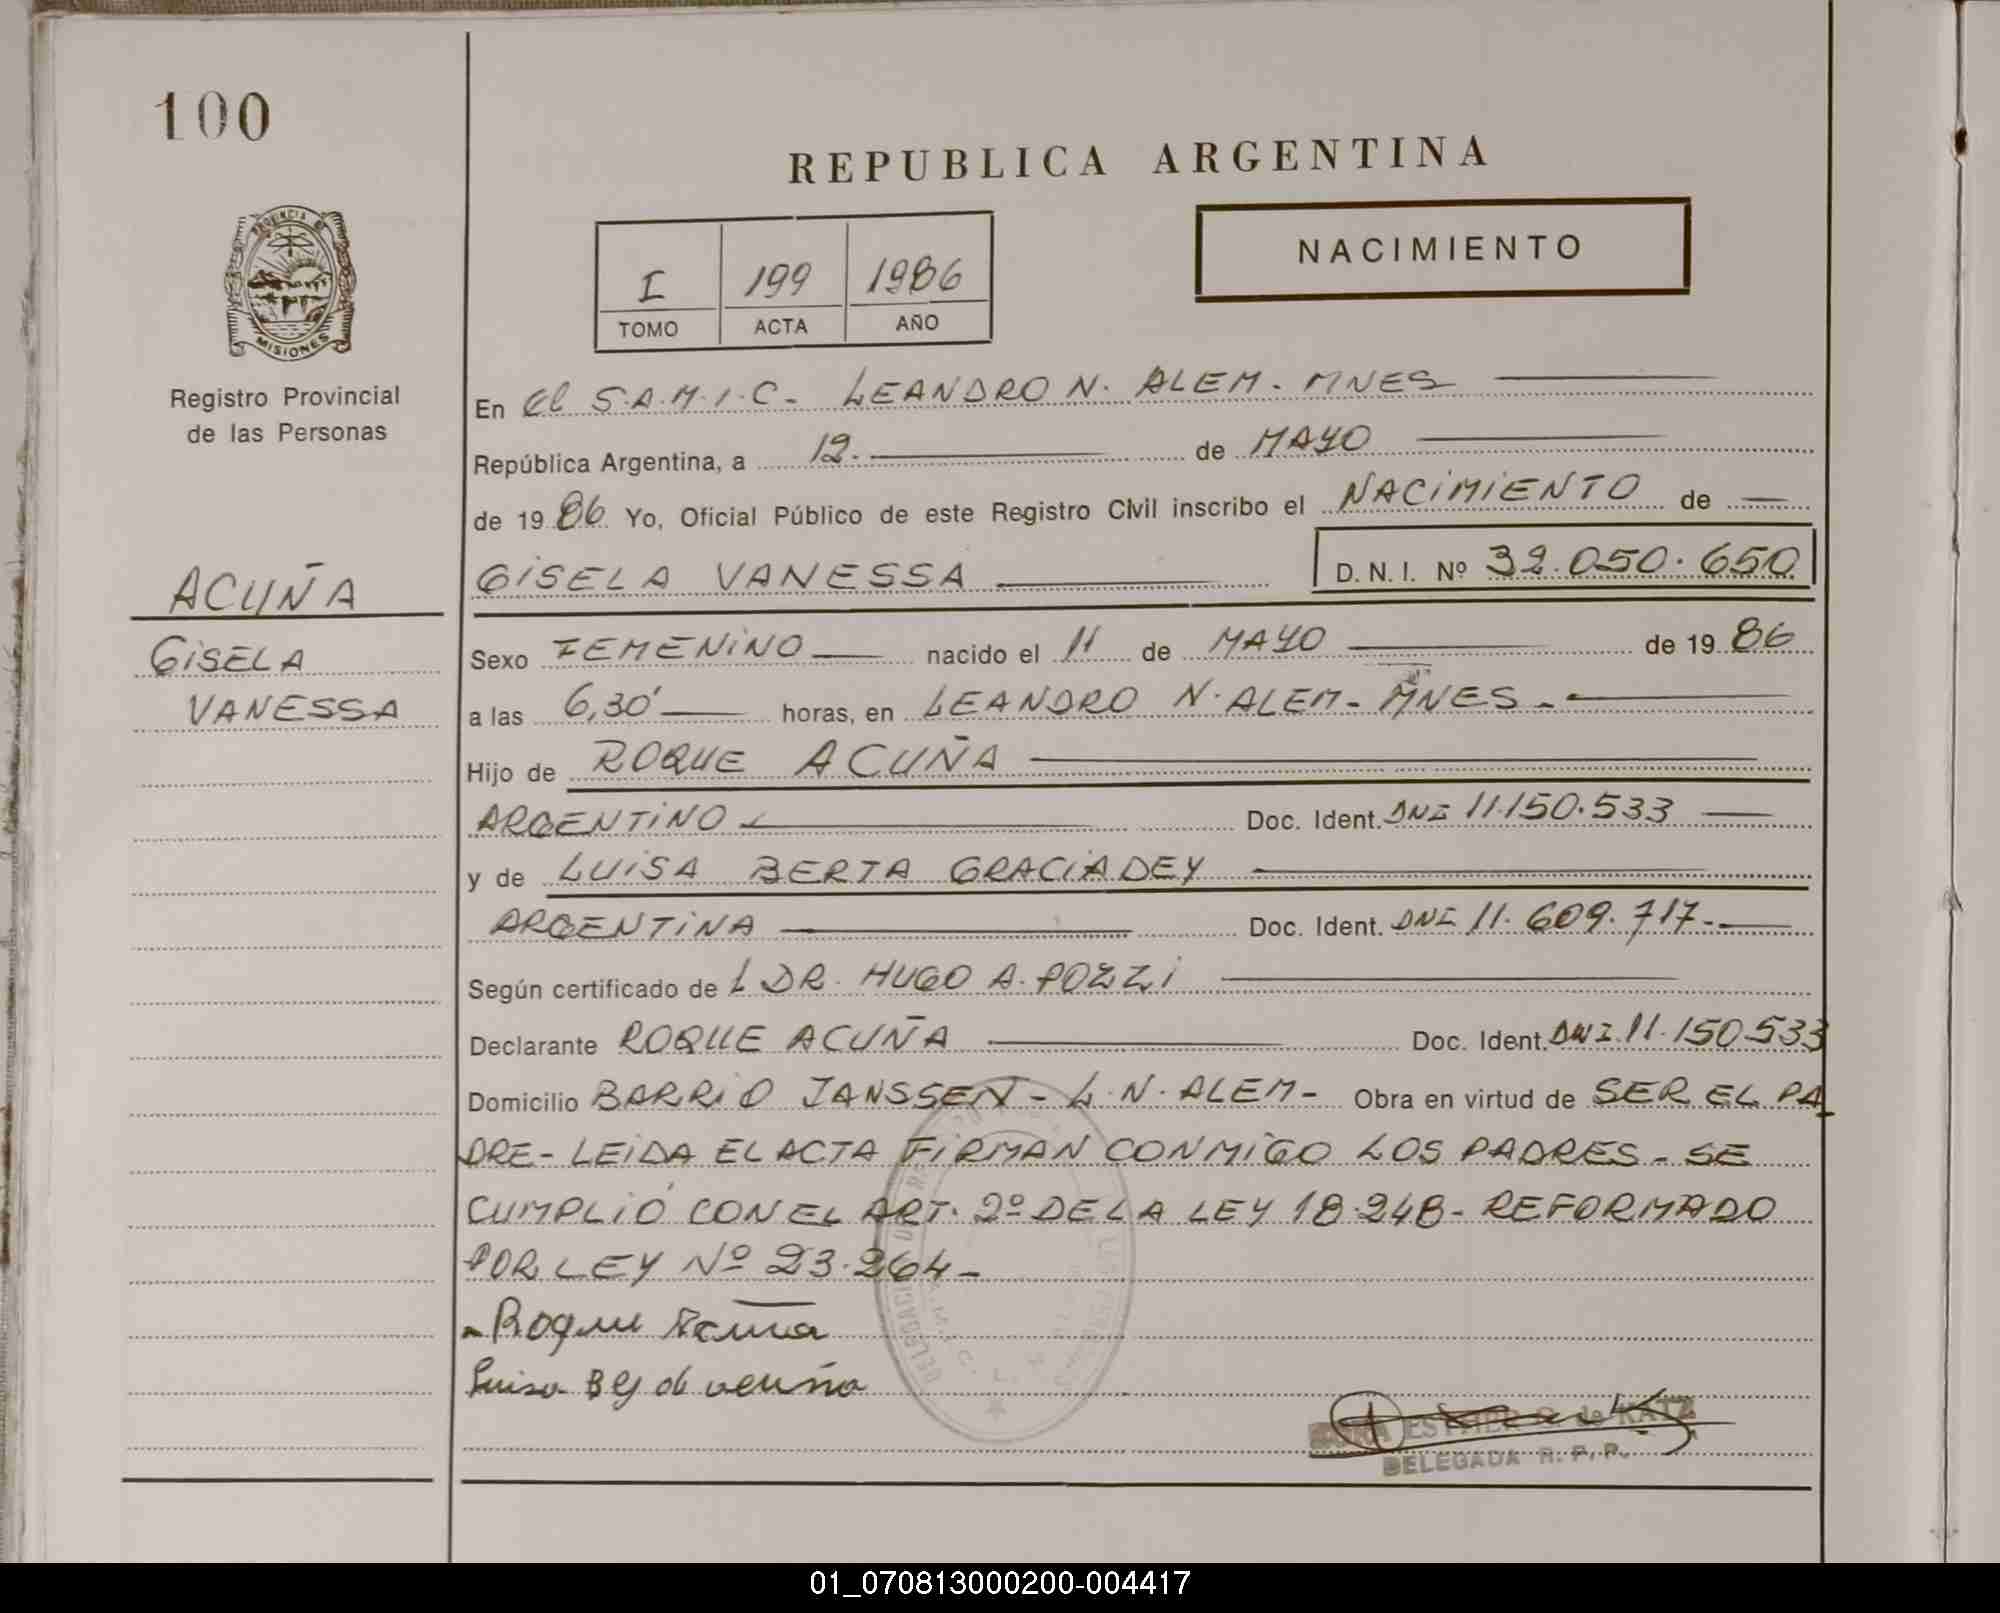 100
REPUBLICA ARGENTINA
PROVINCIA DE
MISIONES
NACIMIENTO
I 199 1986
TOMO ACTA AÑO
Registro Provincial
de las Personas
En El S.A.M.I.C- LEANDRO N. ALEM- MNES
República Argentina, a 12. de MAYO
de 1986 Yo, Oficial Público de este Registro Civil inscribo el NACIMIENTO de
GISELA VANESSA D.N.I. Nº 32.050.650
ACUÑA
GISELA
VANESSA
Sexo FEMENINO nacido el 11 de MAYO de 1986
a las 6,30' horas, en LEANDRO N. ALEM- MNES-
Hijo de ROQUE ACUÑA
ARGENTINO Doc. Ident. DNI 11.150.533
y de LUISA BERTA GRACIADEY
ARGENTINA Doc. Ident. DNI 11.609.717-
Según certificado de L DR. HUGO A. POZZI
Declarante ROQUE ACUÑA Doc. Ident. DNI.11.150.533
Domicilio BARRIO JANSSEN- L.N.ALEM- Obra en virtud de SER EL PA
DRE- LEIDA EL ACTA FIRMAN CONMIGO LOS PADRES- SE
CUMPLIÓ CON EL ART. 2º DE LA LEY 18.248- REFORMADO
POR LEY Nº 23.264-
Roque Acuña
Luisa B G de acuña
ESTHER G. de KATZ
DELEGADA R. P. P.
01_070813000200-004417